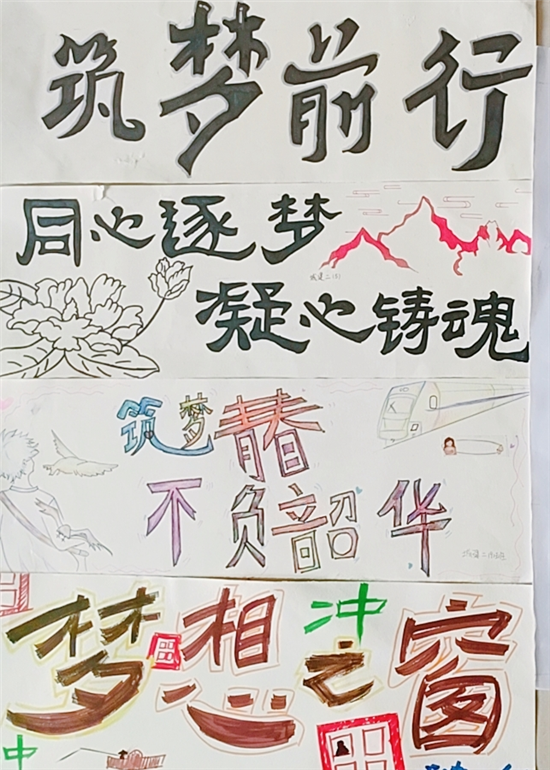 筑梦前行
同心逐梦
凝心铸魂
筑梦青春
不负韶华
梦想之窗
冲
冲